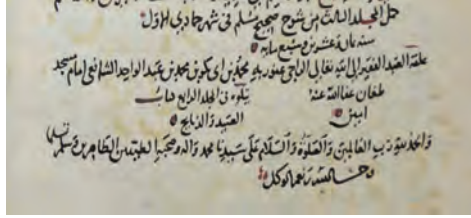 كمل المجلد الثالث من شرح صحيح مسلم في شهر جمادى الاول
سنة ثمان وعشرين وسبع مايه
علقه العبد الفقير الى الله تعالى الراجي عفو ربه محمد بن ابي بكر بن محمد بن عبد الواحد الشافعي امام مسجد
طغان عفا الله عنه يتلوه في المجلد الرابع كتاب
امين الصيد والذبايح
والحمد لله رب العالمين والصلوة والسلام على سيدنا محمد واله وصحبه الطيبين الطاهرين وسلم
وحسبنا الله ونعم الوكيل